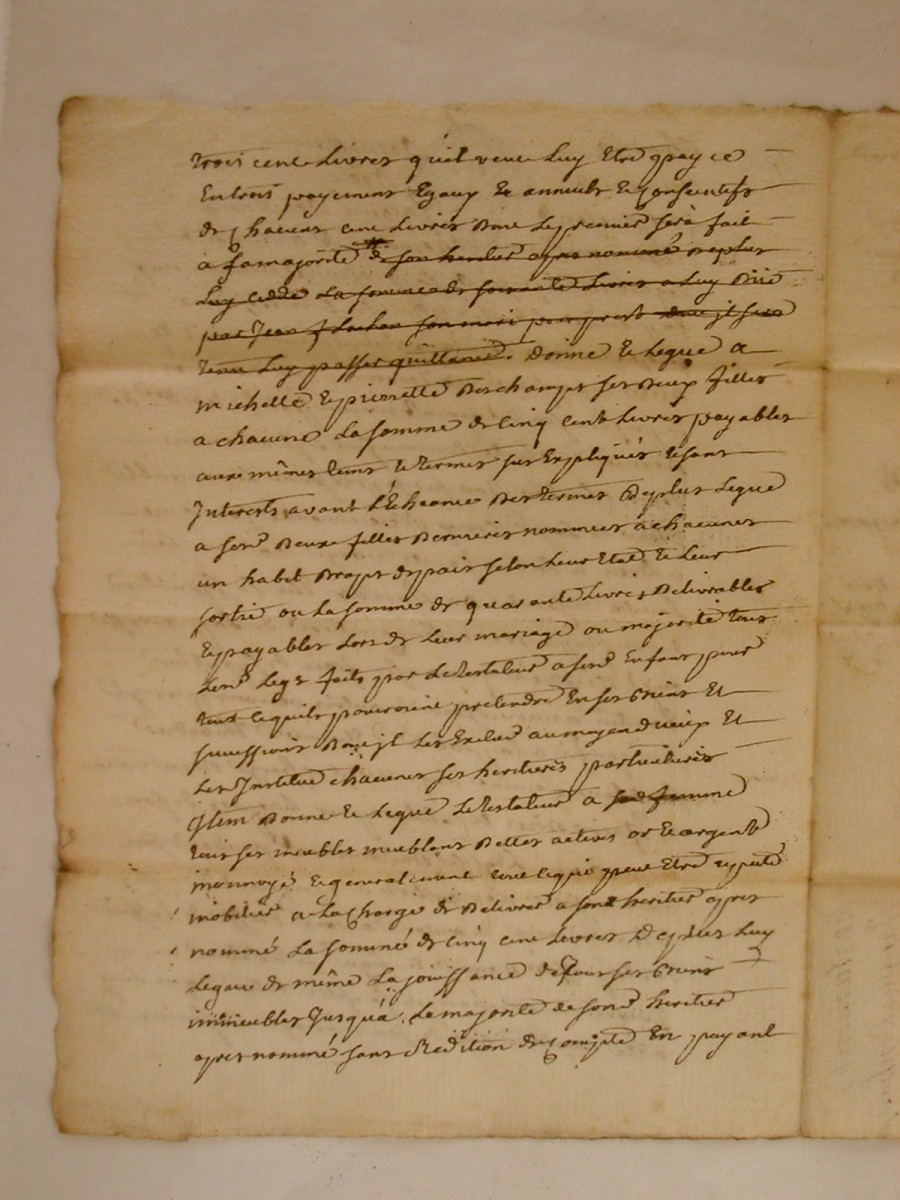 trois cent Livres quil veut Luy Etre payee
En trois payement Egaux et annuels et Consecutifs
de chacun cent Livres Dont Le premier sera fait
a sa majorité de son heritier apres nommé de plus
Luy cedde La somme de soixante Livres a Luy
par Jean son mari pour prest dont jl sera
tenu Luy passer quittance. Donne et Legue a
michelle et pierrette Deschamps ses Deux filles
a chacune La somme de Cinq cent Livres payables
aux mêmes tems et termes sus Expliqués et sans
Interests avant l'Echeance des termes De plus Legue
a ses Deux filles Dernieres nommées a chacunes
un habit Draps de pais selon Leur Etat et Leur
sortie ou La somme de quarante Livres Delivrables
et payables Lors de Leur mariage ou majorité tous
Legs faits par Le testateur a Enfans pour
tout ce quils pourroient pretendre En ses Biens et
successions Dont jl Les Exclut au moyen d'iceux et
Les Institue chacunes ses heritieres particulieres
Item Donne et Legue Le testateur a sa femme
tous ses meubles meublans Dettes actives or et argent
monnoyé et generalement tout ce qui peut Etre reputé
mobilier a La Charge de Delivrer a son heritier apres
nommé La somme de cinq cent Livres De plus Luy
Legue de même La jouissance de tous ses Biens
immeubles Jusqu'a La majorité de son heritier
apres nommé sans Reddition de Compte En payant